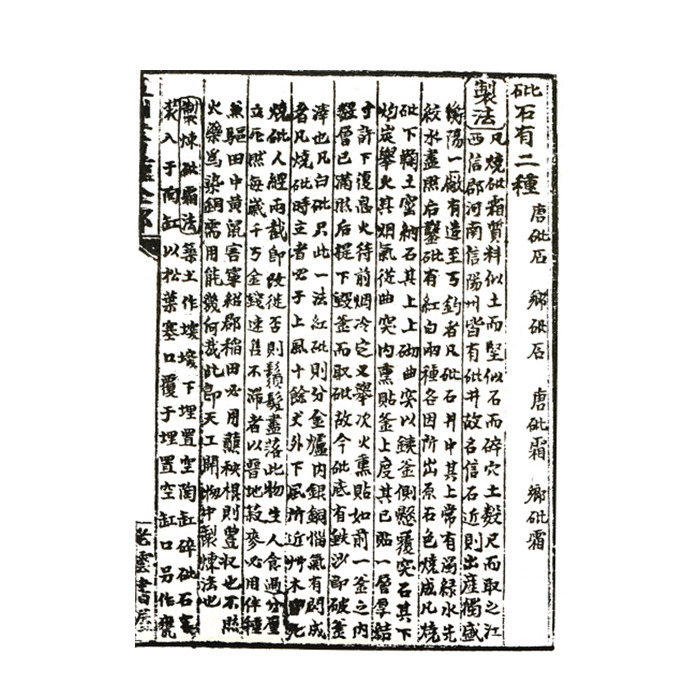 砒石有二種 唐砒石 鄕砒石 唐砒霜 鄕砒霜
製法 凡燒砒霜質料似土而堅似石而碎穴土數尺而取之江
西信郡河南信陽州皆有砒井故名信石近則出産獨盛
衡陽一廠有造至万鈞者凡砒石井中其上常有濁綠水先
絞水盡然后鑿砒有紅白兩種各因所出原石色燒成凡燒
砒下鞠土窑納石其上上砌曲突以鉄釜倒懸覆突石其下
灼炭擧火其烟氣從曲突內熏貼釜上度其已貼一層厚結
寸許下復息火待前烟冷定又擧次火熏貼如前一釜之內
數層已滿然后提下毁釜而取砒故今砒底有鉄沙卽破釜
滓也凡白砒只此一法紅砒則分金爐內銀銅惱氣有閃成
者凡燒砒時立者必于上風十餘丈外下風所近艸木皆死
燒砒人經兩載卽改徙否則鬚髮盡落此物生人食過分厘
立死然每歲千万金錢速售不滯者以晋地菽麥必用伴種
兼驅田中黃鼠害寧紹郡稻田必用蘸秧根則豊収也不然
火藥爲染銅需用能幾何哉此卽天工開物中製煉法也
製煉砒霜法 築土作壞壞下埋置空陶缸碎砒石
裝入于陶缸以松葉塞口覆于埋置空缸口另作甕
老雲書屋